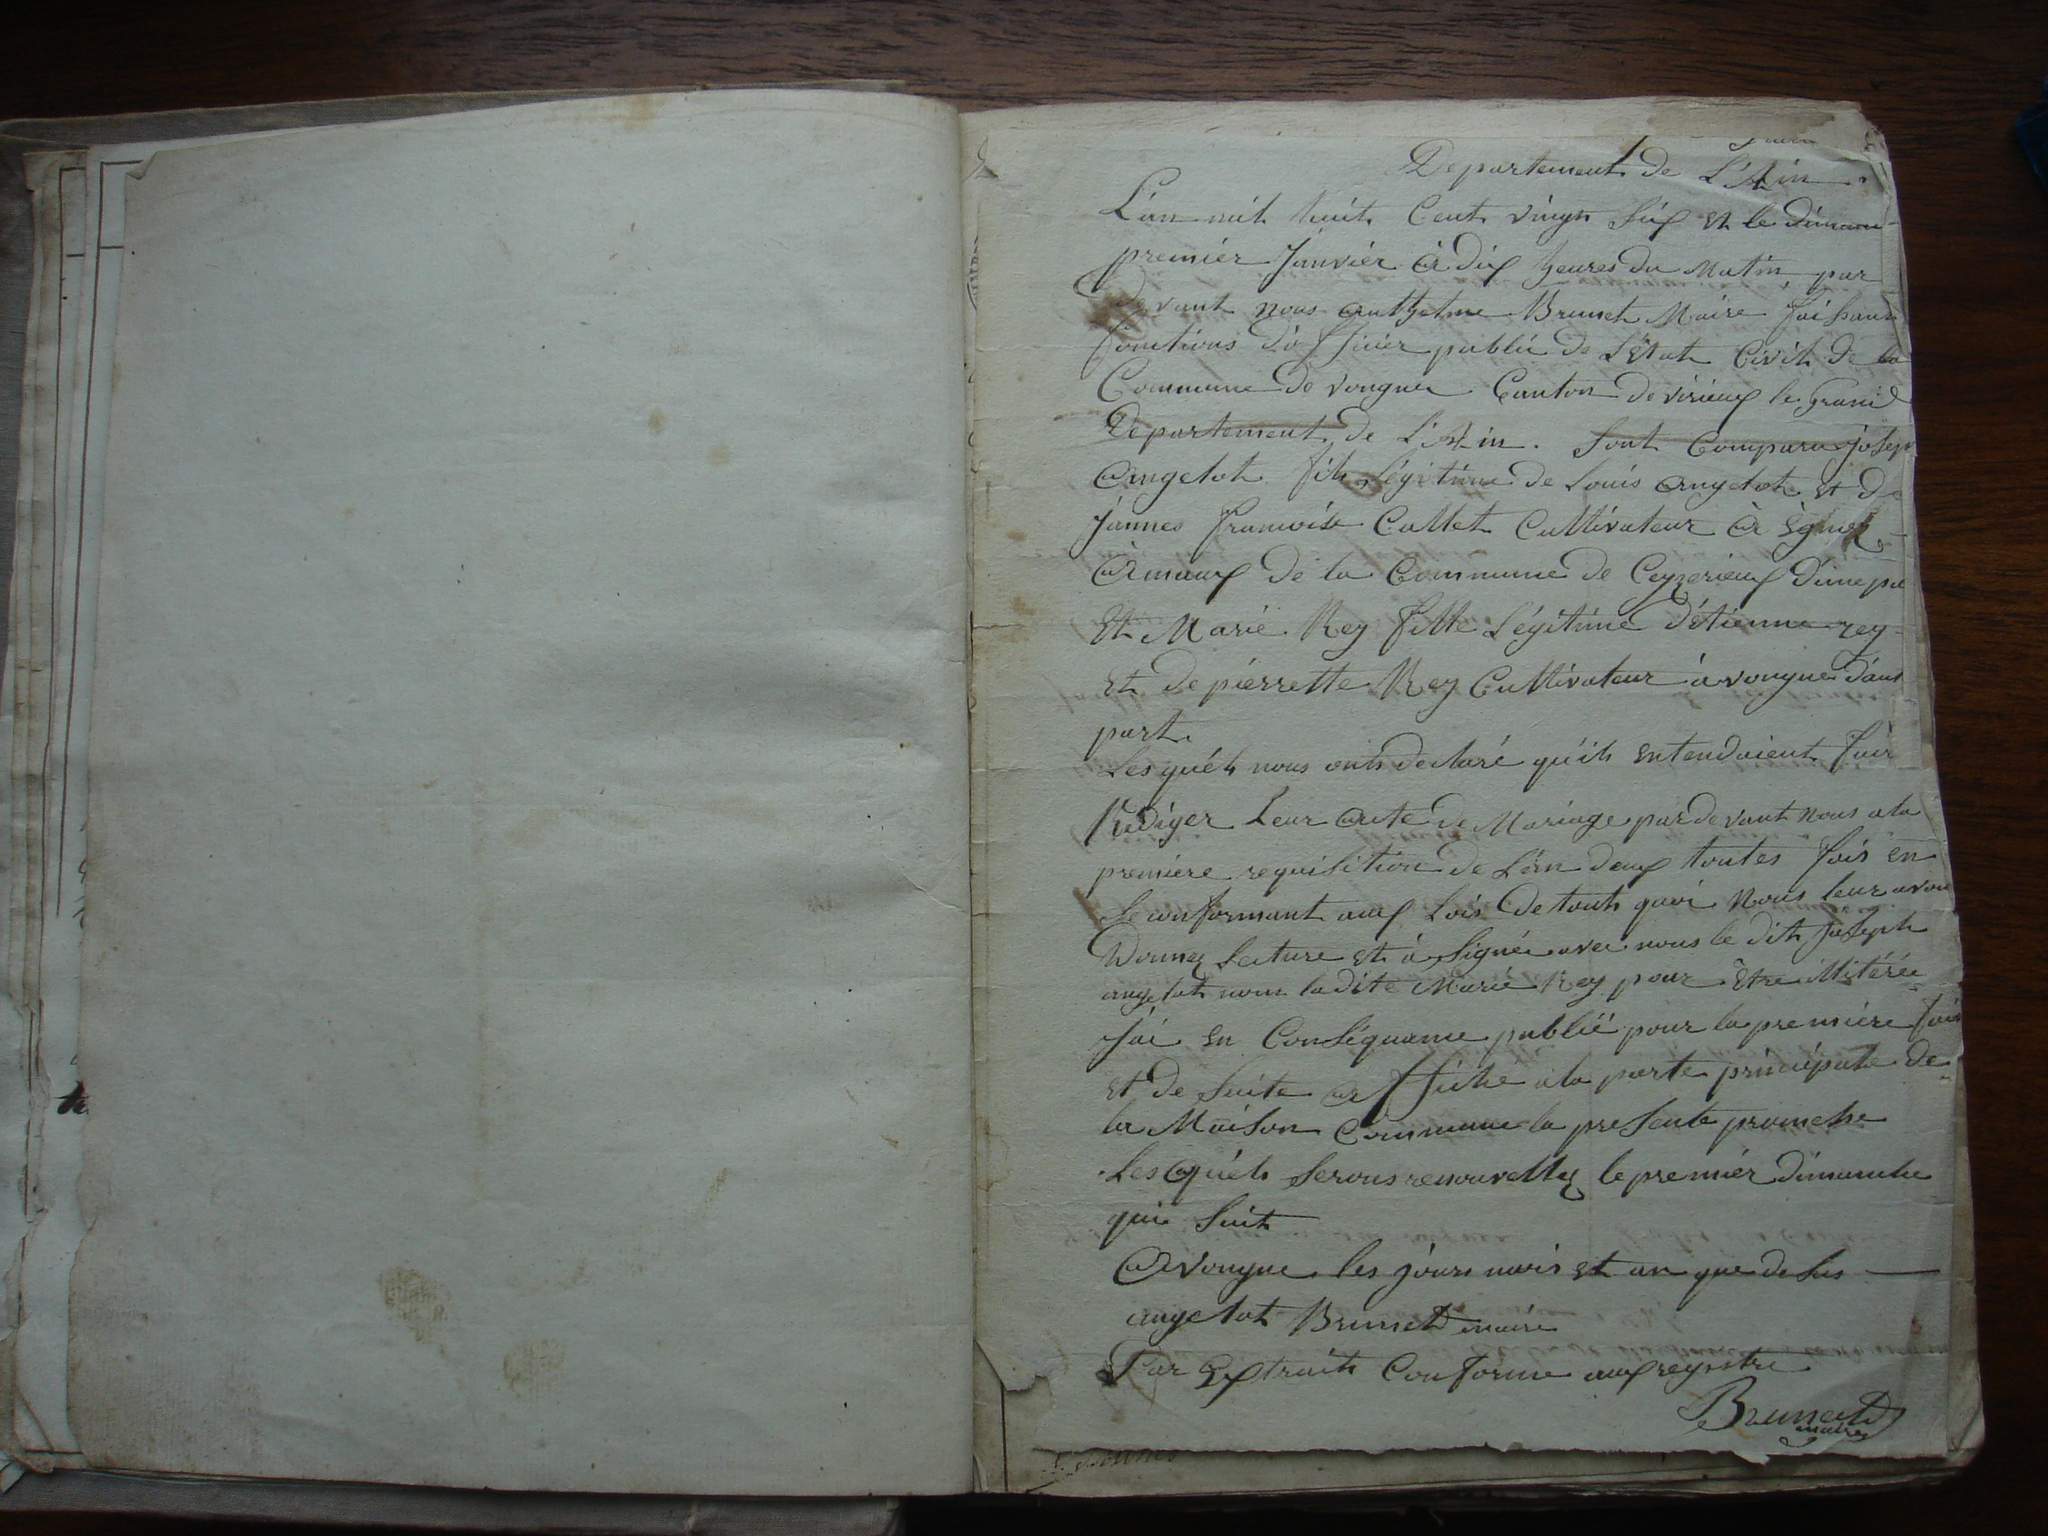 Departement de L'Ain
L'an mil huit Cent vingt Six Et le diman
premiér Janviér à dix heures du Matin par
devant nous anthelme Brunet Maire faisant
fonctions d'officiér public de L'Etat Civil de la
Commune de vongne Canton de virieux le Grand
Departement de L'Ain. Sont Comparu joseph
angelot fils Légitime de Louis angelot Et de
jannes francoise Callet Cultivateur à
de la Commune de Ceyzerieux d'une par
Et Marie Rey fille Légitime d'étienne rey
Et de piérrette Rey Cultivateur à vongne d'aut
part.
Les quéls nous onts declaré qu'ils Entendoient fair
Rediger Leur acte de Mariage pardevant nous a la
premiere requisition de L'un deux toutes fois En
Se conformant aux Lois De touts quoi Nous leur avon
Donnez Lecture Et à Signée avec nous le dit Joseph
angelot non la dite Marie Rey pour Etre illitérée
J'ai En Conséquance publié pour la premiére fois
Et de Suite affiche a la porte principale de
la Maison Commune la presente
Les quéls Serons renouvellez le premiér dimanche
qui Suit
A vongne les jours mois Et an que desus
angelot Brunet maire
Par Extraits Conforme aux registre
Brunet
maire